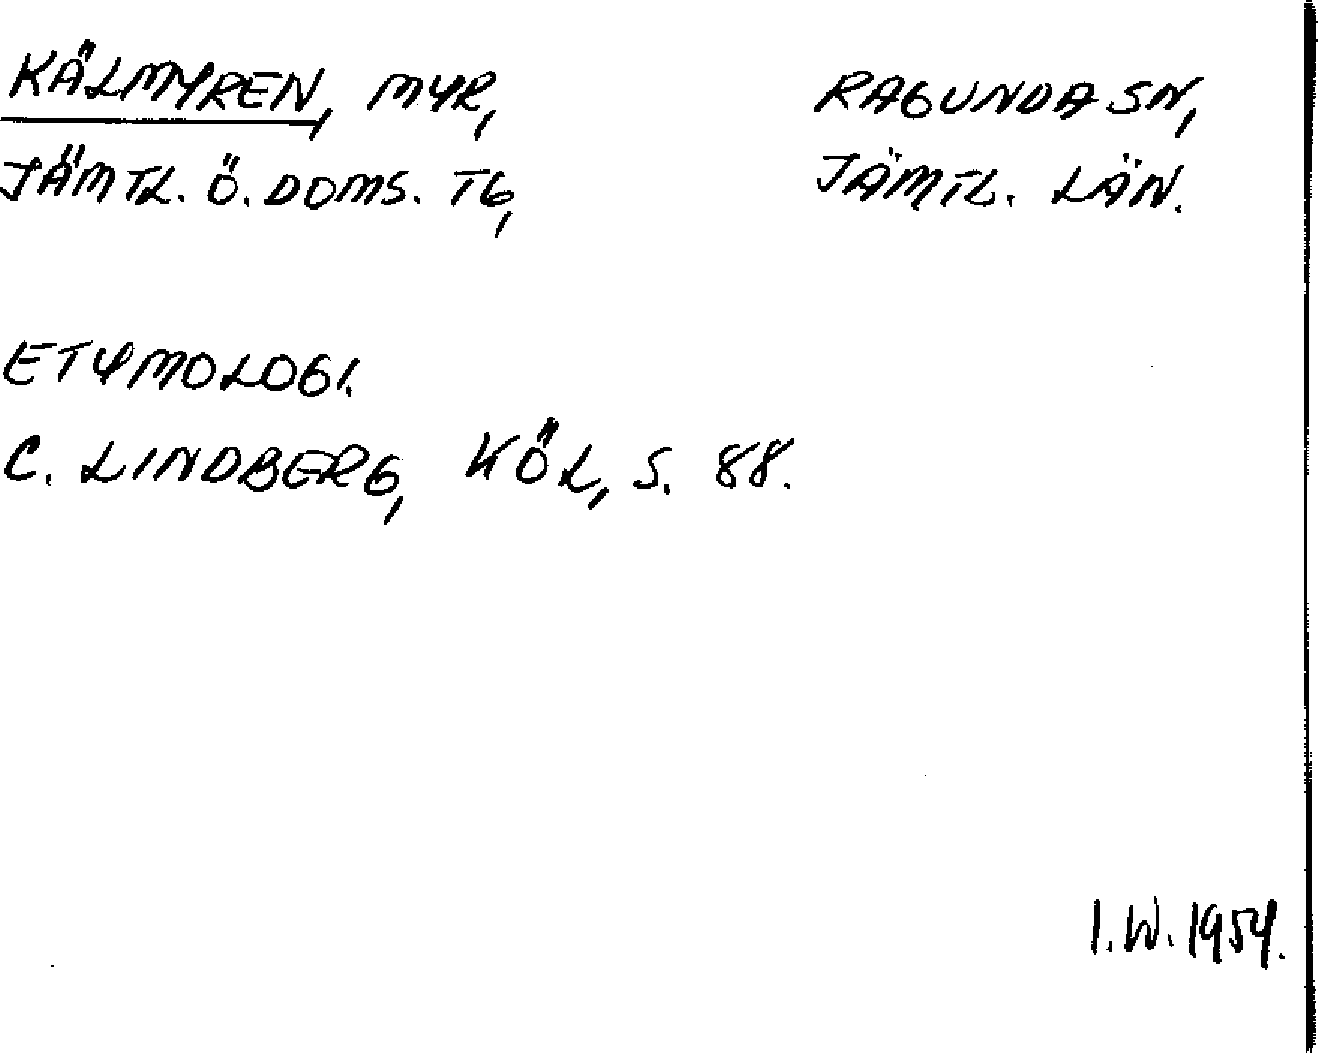 KÄLMYREN, MYR, RAGUNDA SN,
JÄMTL. Ö. DOMS. TG, JÄMTL. LÄN.
ETYMOLOGI.
C. LINDBERG, KÖL, S. 88.
I.W. 1954.